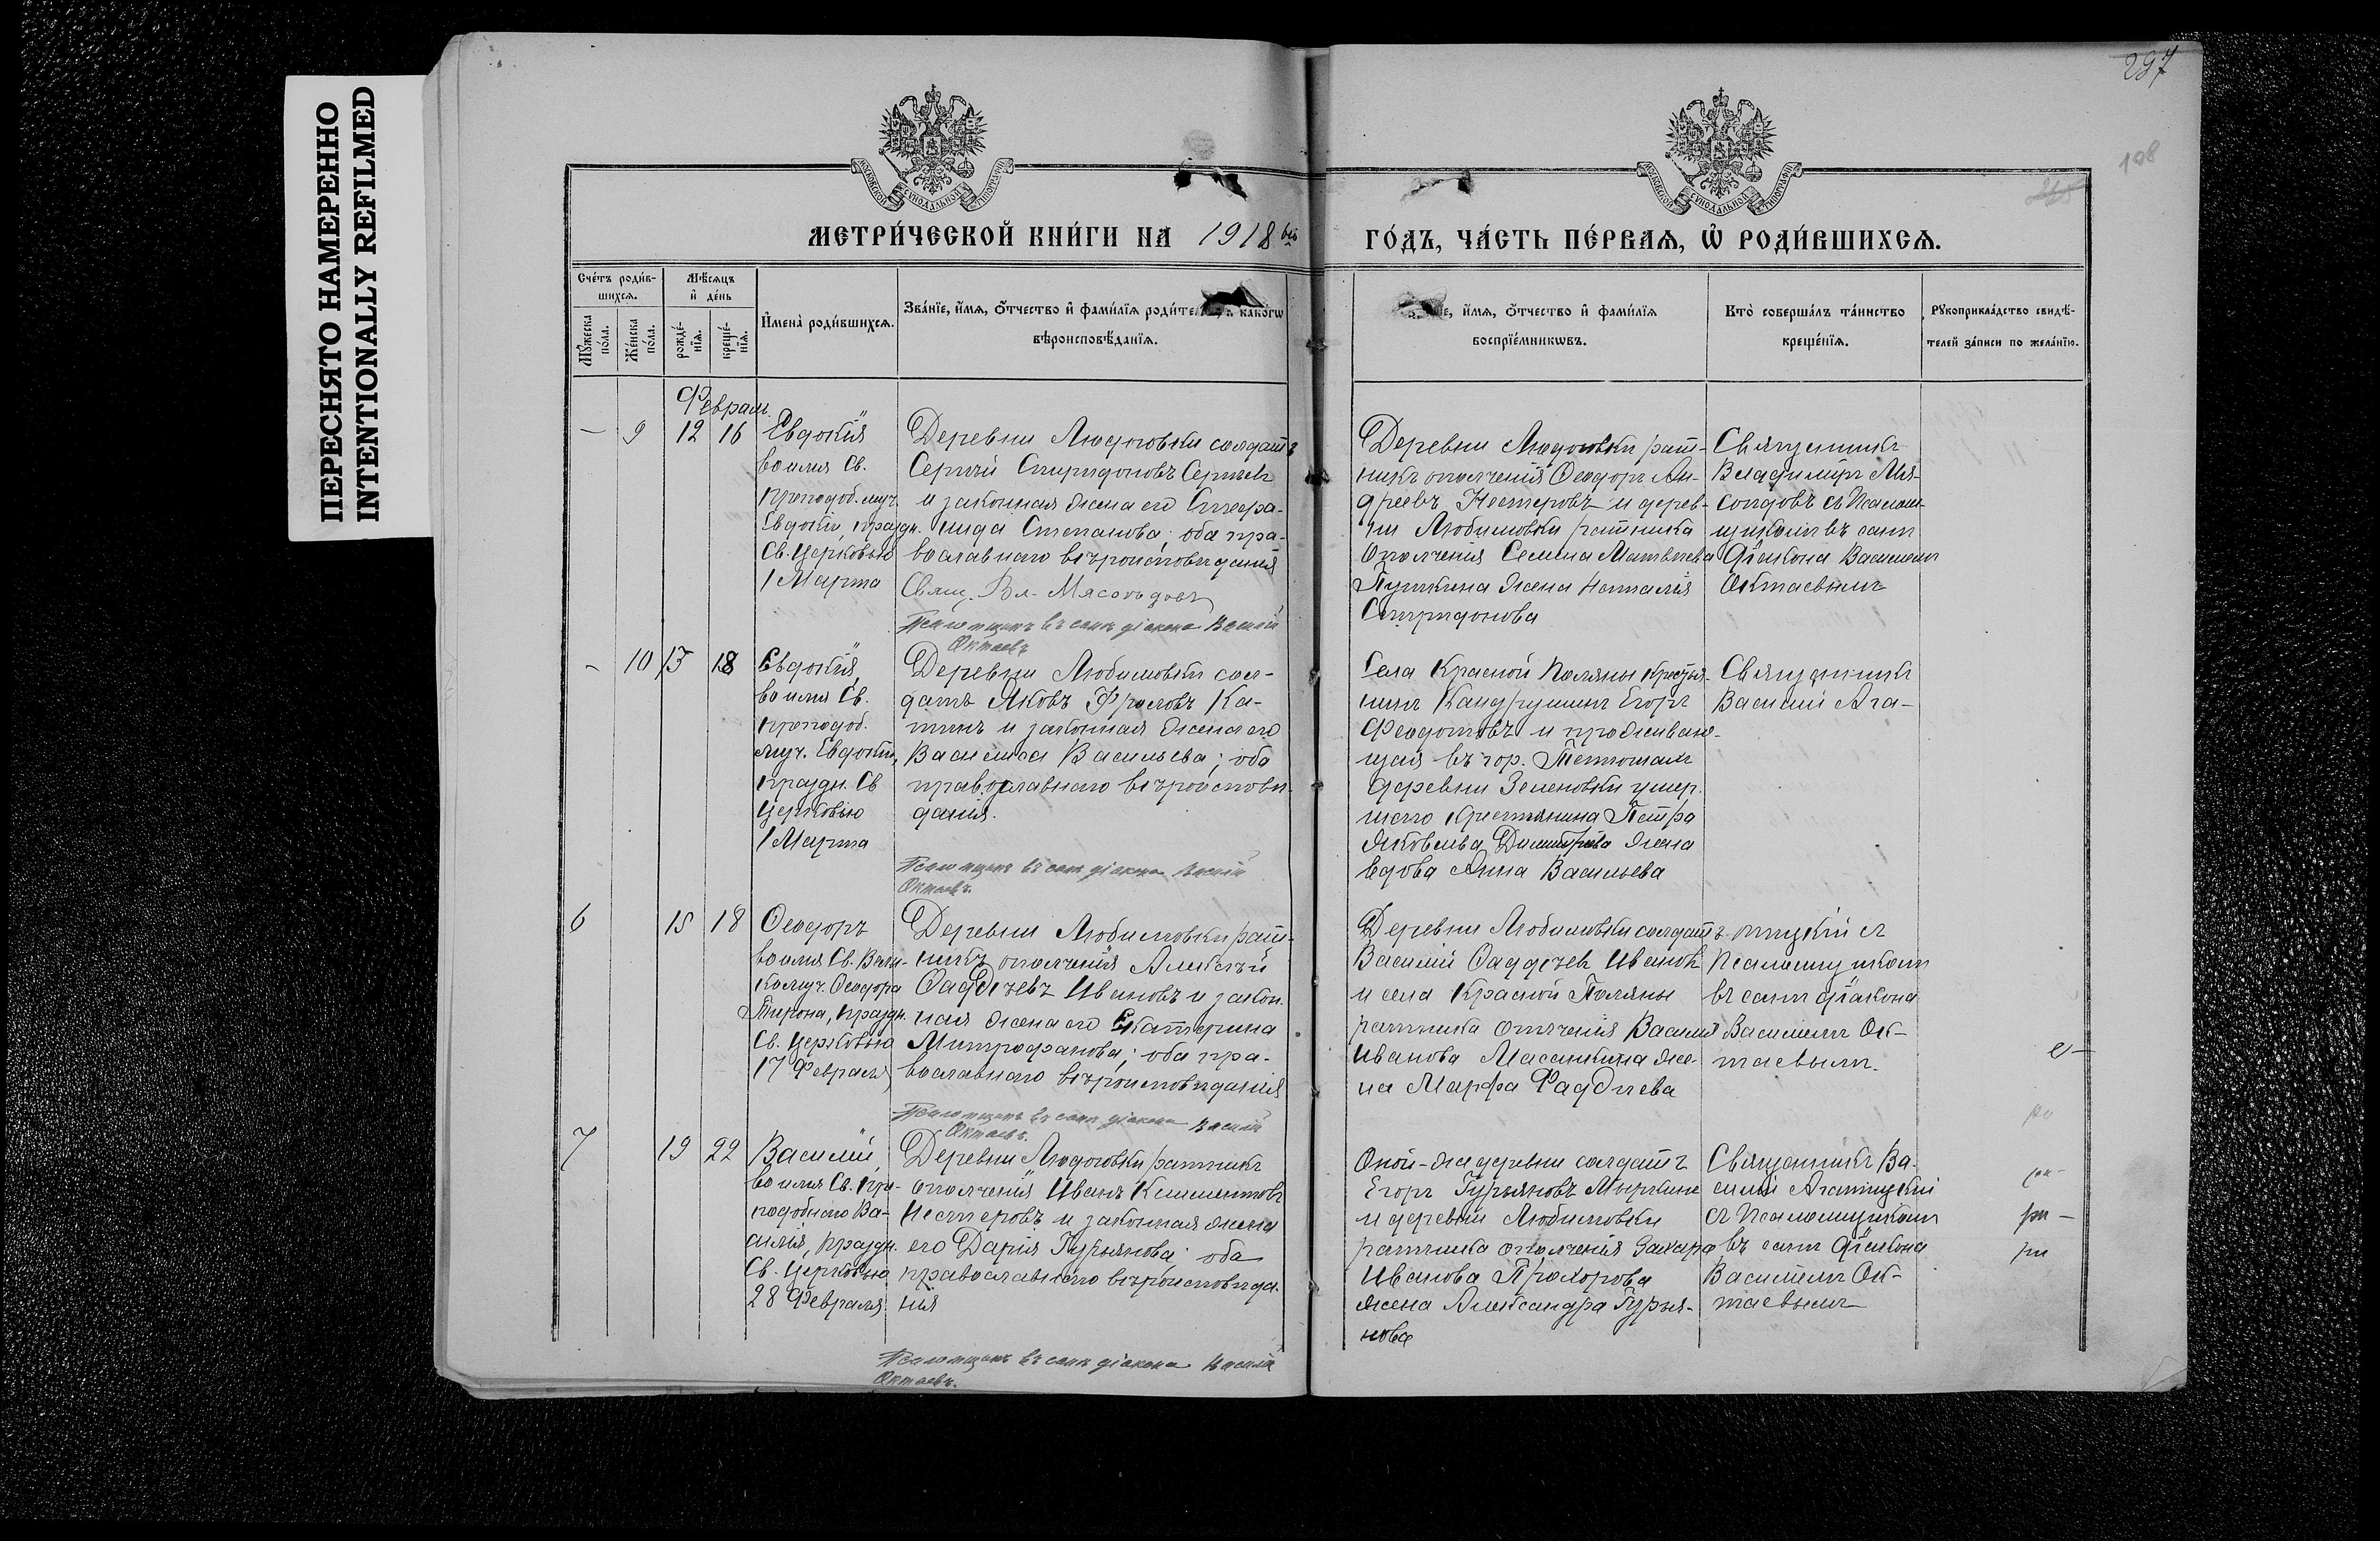 ПЕРЕСНЯТО НАМЕРЕННО
INTENTIONALLY REFILMED
297
108
МОСКОВСКОЙ СѴНОДАЛЬНОЙ ТИПОГРАФІИ
МОСКОВСКОЙ СѴНОДАЛЬНОЙ ТИПОГРАФІИ
МЕТРИ́ЧЕСКОЙ КНИ́ГИ НА 1918
ГО́ДЪ, ЧА́СТЬ ПЕ́РВАѦ, Ѡ҆ РОДИ́ВШИХСѦ.
Сче́тъ роди́в-
шихсѧ.
Мꙋ́жеска по́ла.
Же́нска по́ла.
Мѣ́сѧцъ
и҆ де́нь
рожде́-
нїѧ.
креще́-
нїѧ.
И҆мена̀ роди́вшихсѧ.
Зва́нїе, и҆́мѧ, ѻ҆́тчество и҆ фами́лїѧ роди́те како́гѡ
вѣроисповѣ́данїѧ.
їе, и҆́мѧ, ѻ҆́тчество и҆ фами́лїѧ
воспрїе́мникѡвъ.
Кто̀ соверша́лъ та́инство
креще́нїѧ.
Рꙋкоприкла́дство свидѣ́-
телей за́писи по жела́нїю.
Февраль.
– 9 12 16
Евдокія
во имя Св.
преподоб. муч.
Евдокіи, праздн.
Св. Церковью
1 Марта
Деревни Людоговки солдатъ
Сергій Спиридоновъ Сергѣевъ
и законная жена его Стефа-
нида Степанова; оба пра-
вославнаго вѣроисповѣданія
Свящ. Вл. Мясоѣдовъ
Псаломщикъ въ санѣ діакона Василій
Октаевъ
Деревни Людоговки рат-
никъ ополченія Ѳеодоръ Ан-
дреевъ Нестеровъ и дерев-
ни Любимовки ратника
ополченія Семена Матвѣева
Пушкина жена Наталія
Спиридонова
Священникъ
Владиміръ Мя-
соѣдовъ съ Псалом-
щикомъ въ санѣ
Діакона Василіемъ
Октаевымъ
– 10 13 18
Евдокія,
во имя Св.
преподоб.
муч. Евдокіи,
праздн. Св
Церковью
1 Марта
Деревни Любимовки сол-
датъ Яковъ Фроловъ Ка-
тинъ и законная жена его
Василиса Васильева; оба
православнаго вѣроисповѣ-
данія.
Псаломщикъ въ санѣ діакона Василій
Октаевъ.
Села Красной Поляны крестья-
нинъ Кандрушинъ Егоръ
Ѳеодотовъ и проживаю-
щая въ гор. Тетюшахъ
деревни Зеленовки умер-
шаго крестьянина Петра
Яковлева Димитріева жена
вдова Анна Васильева
Священникъ
Василій Ага-
6 15 18
Ѳеодоръ
во имя Св. Вели-
комуч. Ѳеодора
Тирона, праздн.
Св. Церковью
17 Февраля
Деревни Любимовки рат-
никъ ополченія Алексѣй
Ѳаддѣевъ Ивановъ и закон.
ная жена его Екатерина
Митрофанова; оба пра-
вославнаго вѣроисповѣданія
Псаломщикъ въ санѣ діакона Василій
Октаевъ.
Деревни Любимовки солдатъ
Василій Ѳаддѣевъ Ивановъ
и села Красной Поляны
ратника ополченія Василія
Иванова Масанкина же-
на Марфа Фаддѣева
пицкій съ
Псаломщикомъ
въ санѣ діакона
Василіемъ Ок-
таевымъ.
7 19 22
Василій,
во имя Св. Пре-
подобнаго Ва-
силія, праздн.
Св. Церковью
28 Февраля
Деревни Людоговки ратникъ
ополченія Иванъ Климентовъ
Нестеровъ и законная жена
его Дарія Гурьянова; оба
православнаго вѣроисповѣда-
нія
Псаломщикъ въ санѣ діакона Василій
Октаевъ.
Оной-же деревни солдатъ
Егоръ Гурьяновъ Мыркинъ
и деревни Любимовки
ратника ополченія Захара
Иванова Прохорова
жена Александра Гурья-
нова
Священникъ Ва-
силій Агапицкій
съ Псаломщикомъ
въ санѣ Діакона
Василіемъ Ок-
таевымъ